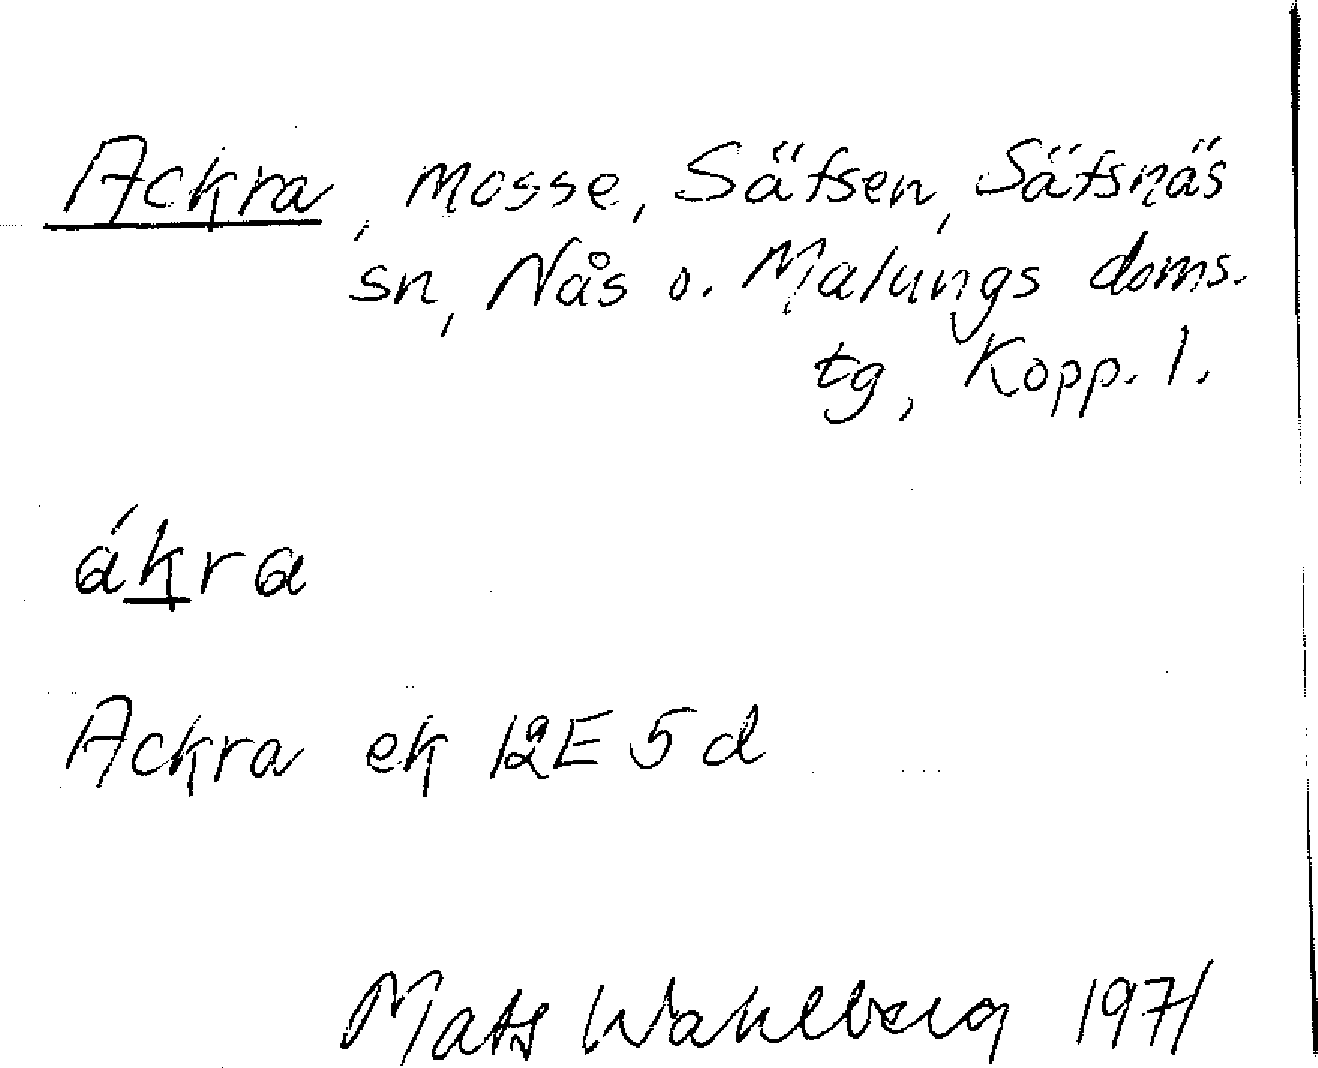 Ackra, mosse, Säfsen, Säfsnäs
sn, Nås o. Malungs doms.
tg, Kopp. l.
ákra
Ackra ek 12E 5d
Mats Wahlberg 1971